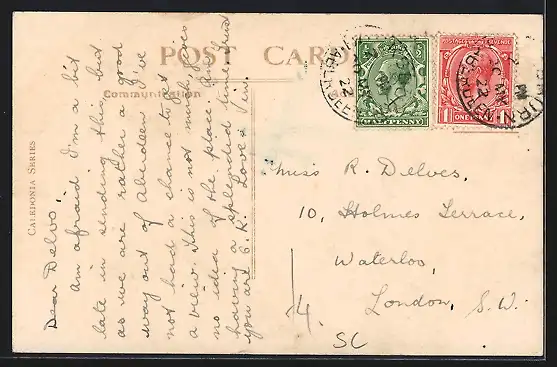 POST CARD
Communication
CALEDONIA SERIES
Dear Delvs',
am afraid I'm a bit
late in sending this, but
as we are rather a good
way out of Aberdeen I've
not had a chance to get
a view. This is not much, gives
no idea of the place. Trust
having a splendid time. Trust
you are O.K. Love
HALFPENNY
1 ONE PENNY 1
ABERDEEN
22
Miss R. Delves,
10, Holmes Terrace,
Waterloo,
London, S.W.
14.
SC